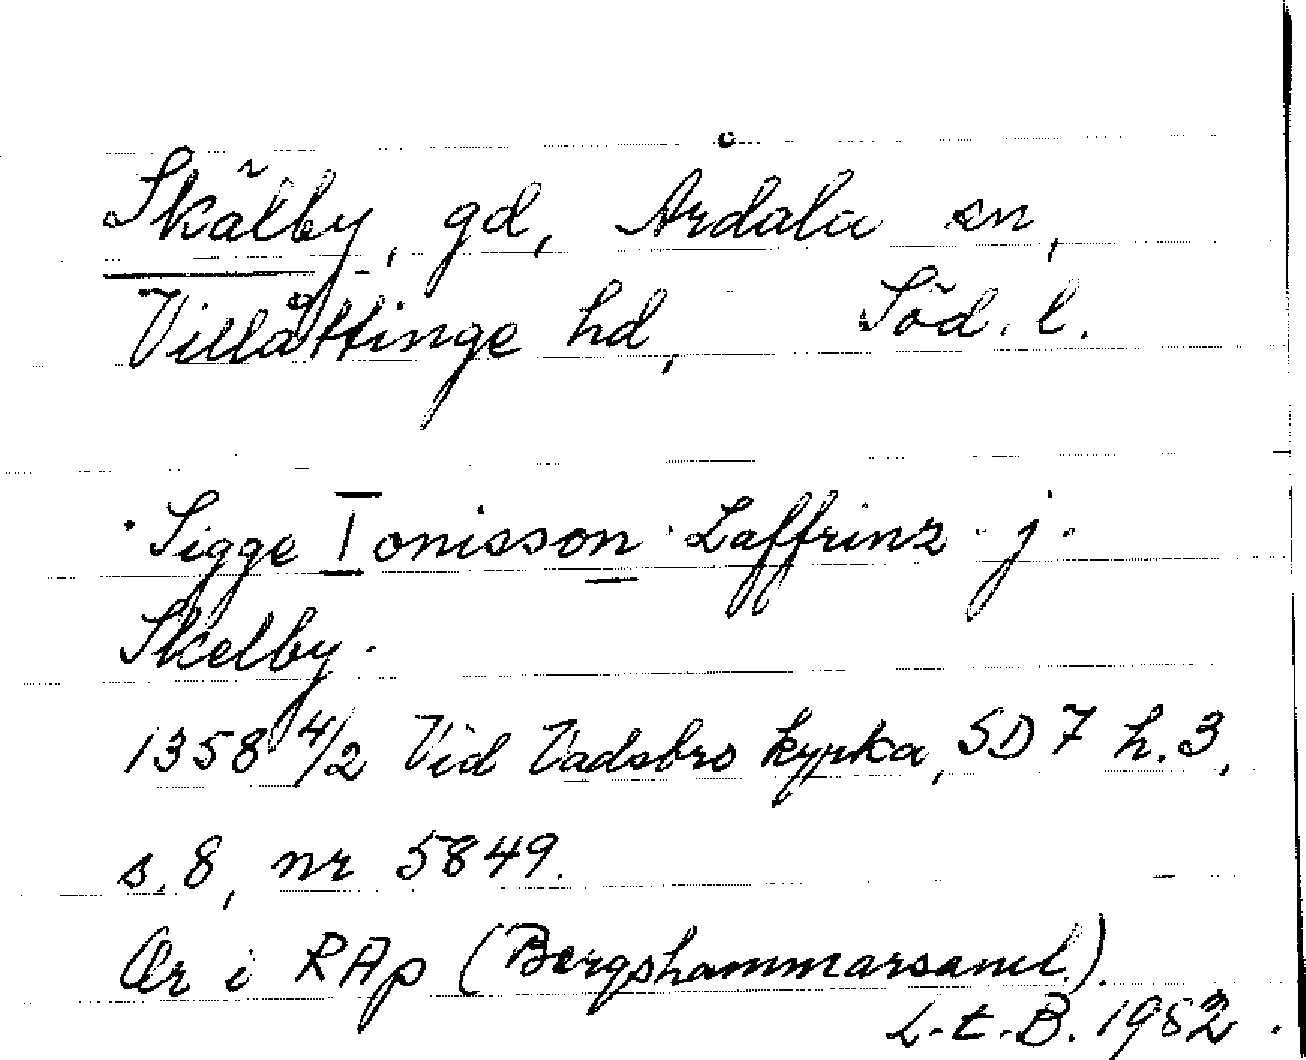 Skälby, gd, Årdala sn,
Villåttinge hd, Söd. l.
"Sigge Ionisson Laffrinz j.
Skelby.
1358 4/2 Vid Vadsbro kyrka, SD 7 h. 3,
s. 8, nr 5849.
Or i RAp (Bergshammarsaml.).
L.t.B. 1982.